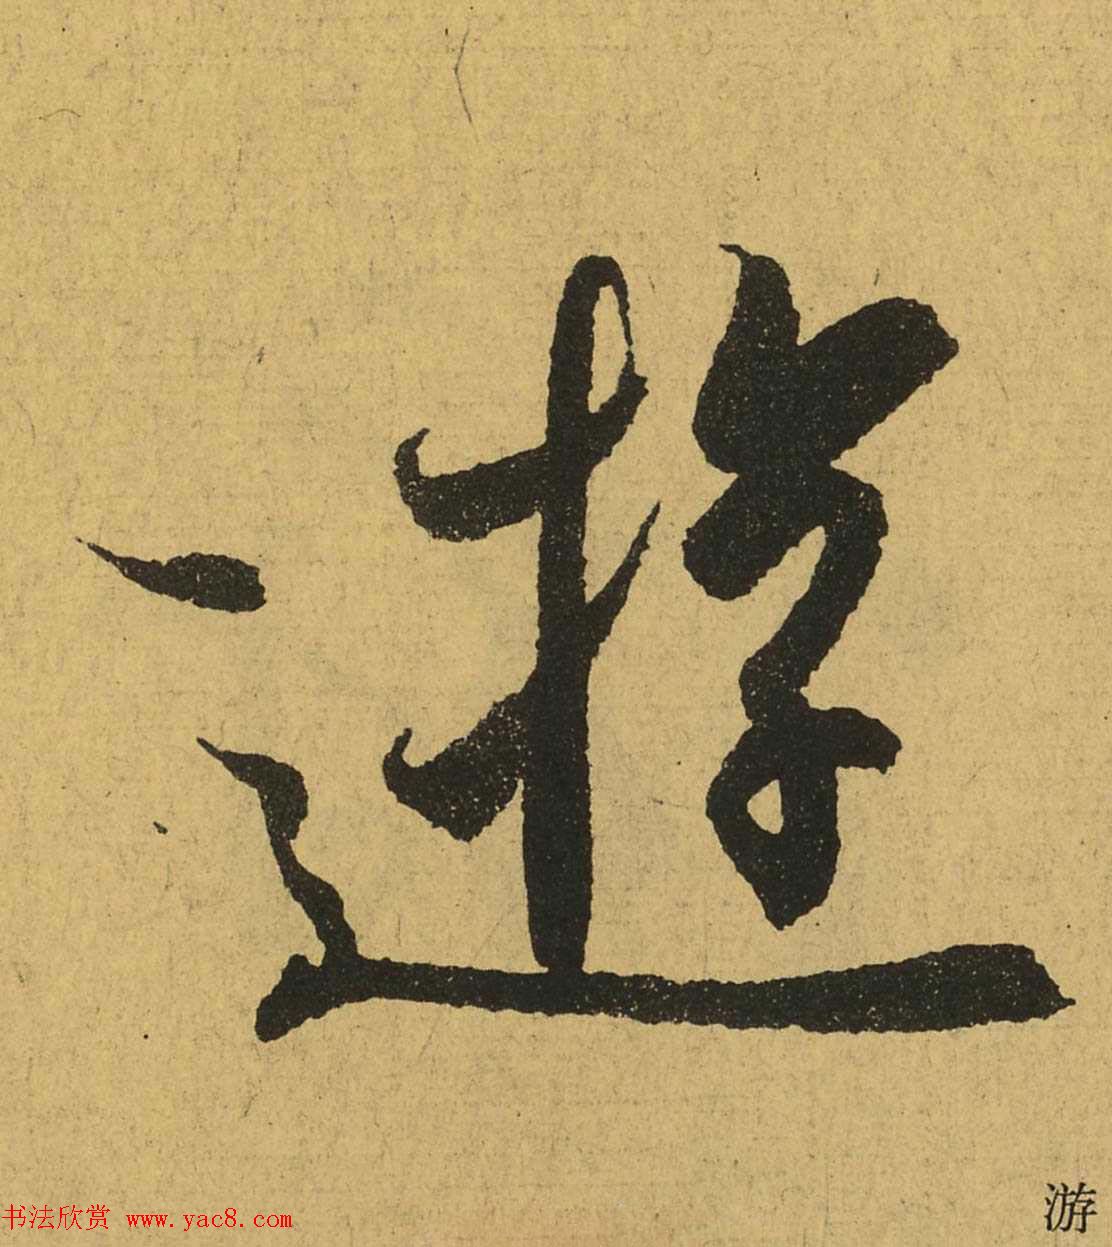 遊
游
书法欣赏 www.yac8.com